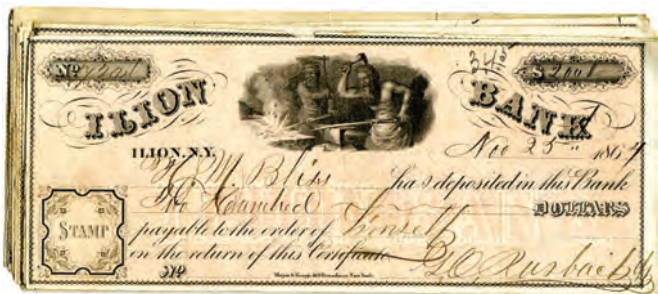 No
ILION BANK
$ 200
ILION, N.Y. Nov 25" 1864
H. M. Bliss has deposited in this Bank
Two Hundred DOLLARS
STAMP
payable to the order of himself
on the return of this Certificate
No